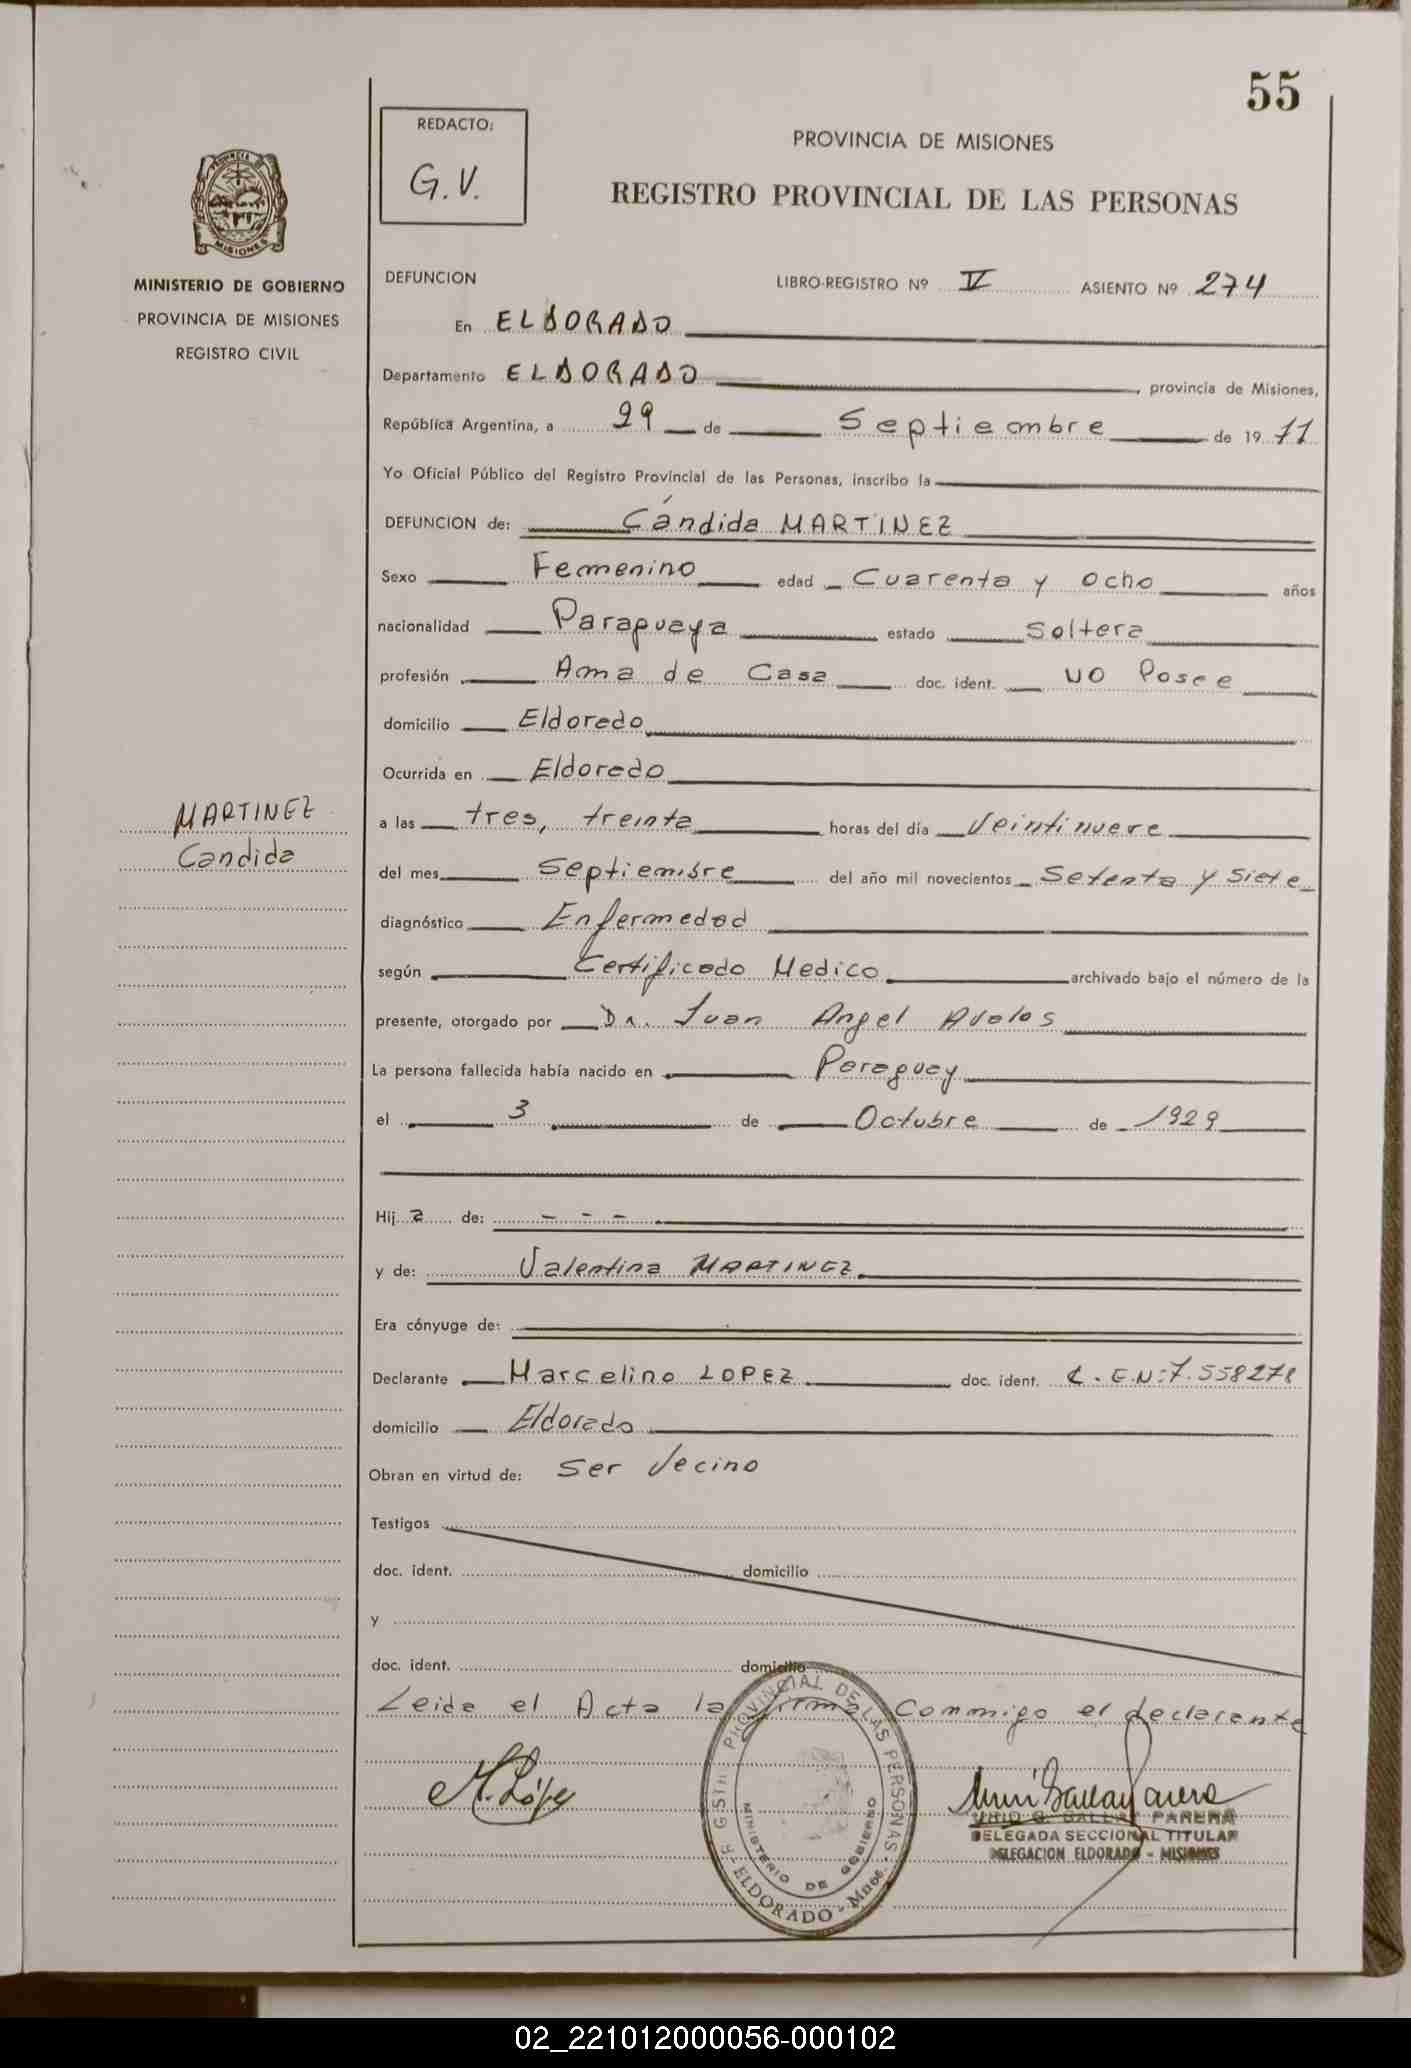 55
REDACTO:
G.V.
PROVINCIA DE MISIONES
REGISTRO PROVINCIAL DE LAS PERSONAS
PROVINCIA DE
MISIONES
MINISTERIO DE GOBIERNO
PROVINCIA DE MISIONES
REGISTRO CIVIL
DEFUNCION LIBRO-REGISTRO Nº V ASIENTO Nº 274
En ELDORADO
Departamento ELDORADO, provincia de Misiones,
República Argentina, a 29 de Septiembre de 19 77
Yo Oficial Público del Registro Provincial de las Personas, inscribo la
DEFUNCION de: Cándida MARTINEZ
Sexo Femenino edad Cuarenta y Ocho años
nacionalidad Paraguaya estado Soltera
profesión Ama de Casa doc. ident. NO Posee
domicilio Eldoredo
Ocurrida en Eldoredo
MARTINEZ
Candida
a las tres, treinta horas del día Veintinueve
del mes Septiembre del año mil novecientos Setenta y Siete
diagnóstico Enfermedad
según Certificado Medico archivado bajo el número de la
presente, otorgado por Dr. Juan Angel Avalos
La persona fallecida había nacido en Paraguay
el 3 de Octubre de 1929
Hij a de: - - -
y de: Valentina MARTINEZ
Era cónyuge de:
Declarante Marcelino LOPEZ doc. ident. C.E.N:7.558278
domicilio Eldorado
Obran en virtud de: Ser Vecino
Testigos
doc. ident. domicilio
y
doc. ident. domicilio
Leida el Acta la firma Conmmigo el declarante
M. López
REGISTRO PROVINCIAL DE LAS PERSONAS
MINISTERIO DE GOBIERNO
ELDORADO - Mnes.
G. PARERA
DELEGADA SECCIONAL TITULAR
DELEGACION ELDORADO - MISIONES
02_221012000056-000102